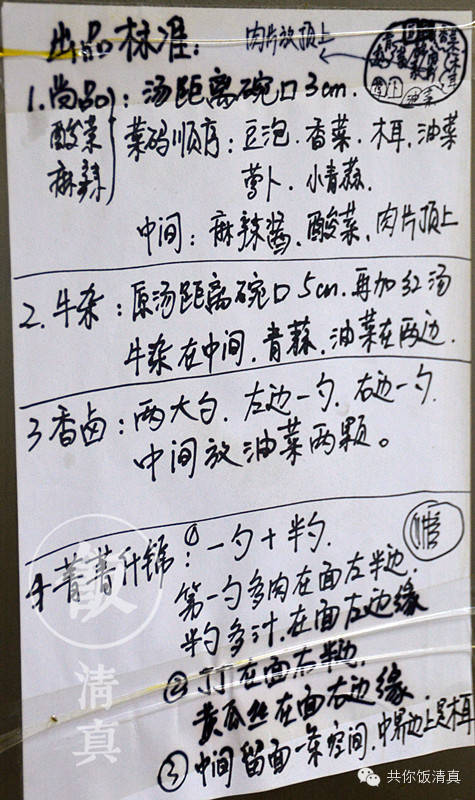 出品标准：
肉片放顶上
1.尚品：汤距离碗口3cm.
酸菜
麻辣
菜码顺序：豆泡.香菜.木耳.油菜
萝卜.小青蒜.
中间：麻辣酱.酸菜.肉片顶上
2.牛杂：原汤距离碗口5cm.再加红汤
牛杂在中间.青蒜.油菜在两边.
3香卤：两大勺.左边一勺.右边一勺.
中间放油菜两颗。
4菁菁什锦：①一勺+半勺.
第一勺多肉在面左半边.
半勺多汁.在面左边缘
②丁在面右半边.
黄瓜丝在面右边缘
③中间留面一条空间.中间边上是木耳
清真
共你饭清真